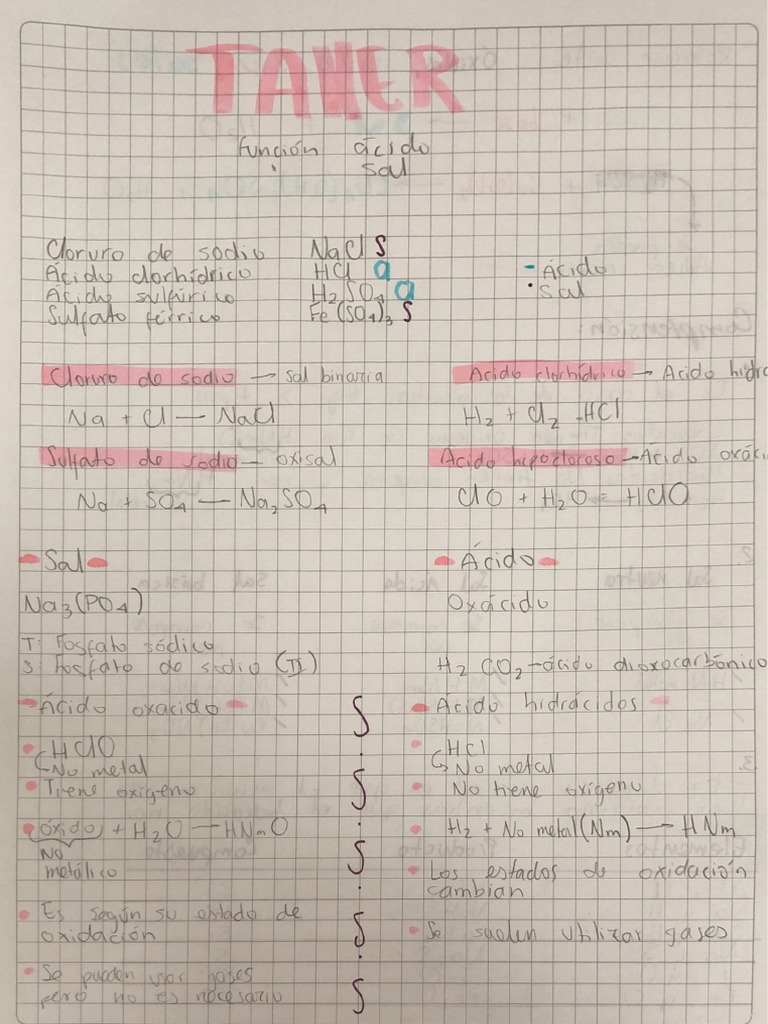 TALLER
función ácido
sal
Cloruro de sodio NaCl S
Ácido clorhídrico HCl a
Ácido sulfúrico H₂SO₄ a
Sulfato férrico Fe(SO₄)₃ S
- Ácido
· Sal
Cloruro de sodio — Sal binaria
Na + Cl — NaCl
Sulfato de sodio — oxisal
Na + SO₄ — Na₂SO₄
Acido clorhídrico → Acido hidra
H₂ + Cl₂ - HCl
Acido hipocloroso - Ácido oxác
ClO + H₂O = HClO
- Sal -
Na₃(PO₄)
T: Fosfato sódico
S: Fosfato de sodio (II)
- Ácido -
Oxácido
H₂ CO₂ - ácido dioxocarbónico
- Ácido oxacido -
• HClO
↳ No metal
• Tiene oxigeno
• (óxido) + H₂O — HNmO
No
metálico
• Es según su estado de
oxidación
• Se pueden usar gases
pero no es necesario
- Ácido hidrácidos -
• HCl
↳ No metal
• No tiene oxígeno
• H₂ + No metal (Nm) — HNm
• Los estados de oxidación
cambian
• Se suelen utilizar gases